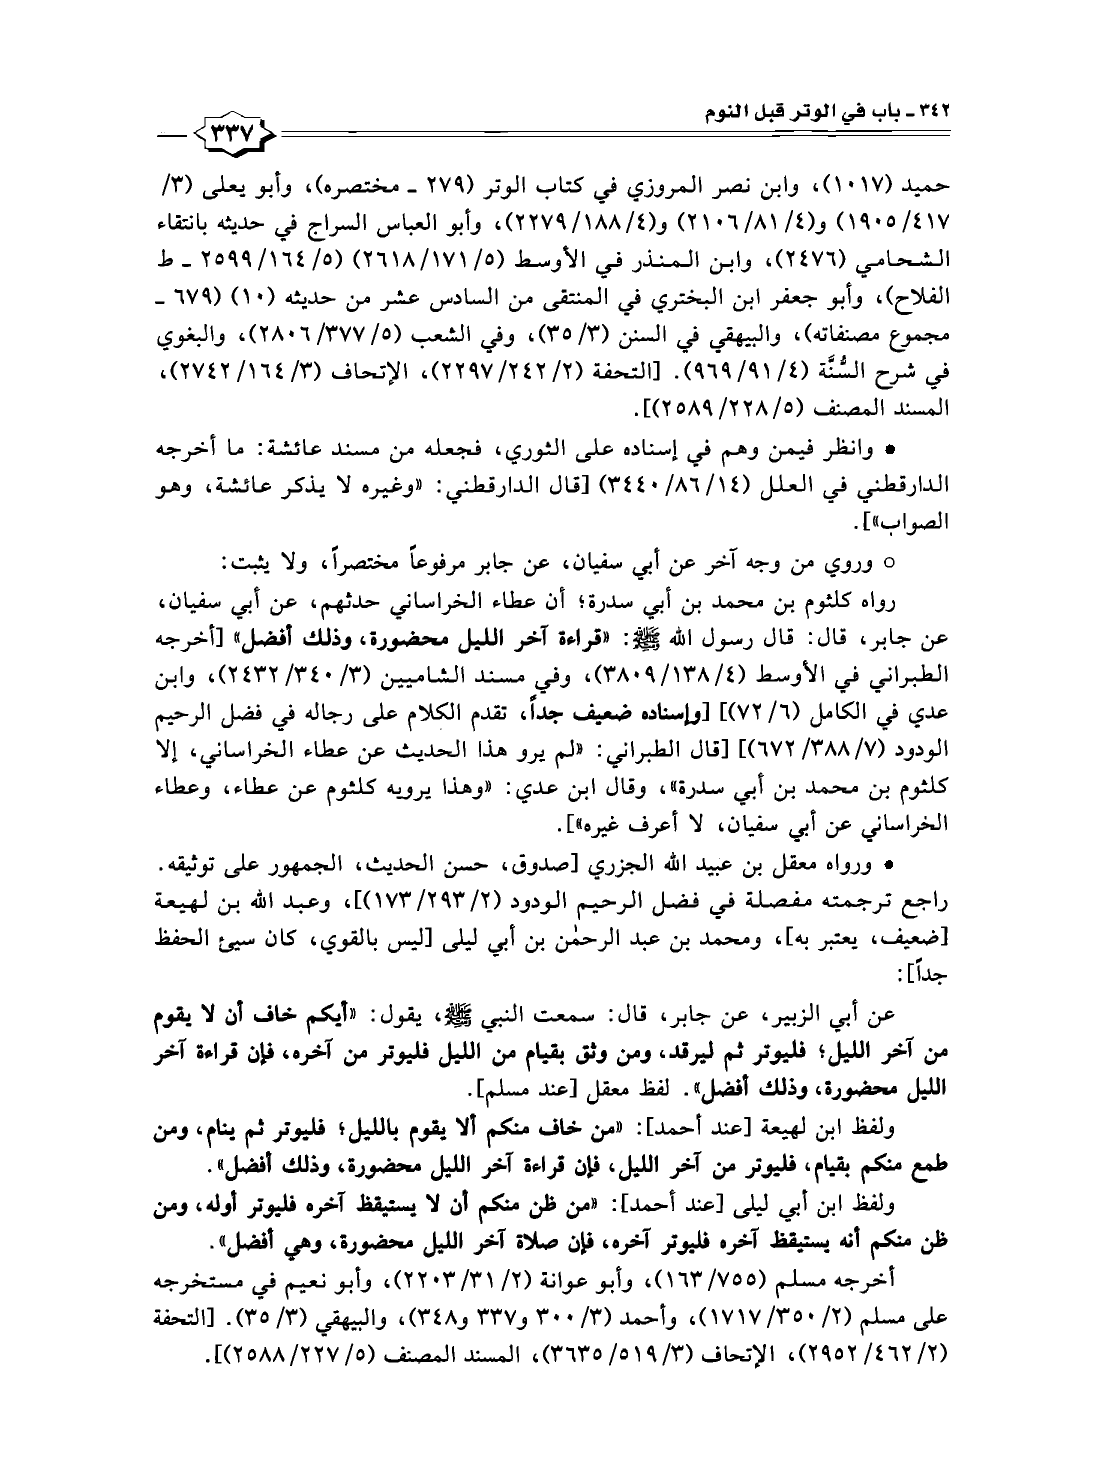 ٣٤٢ - باب في الوتر قبل النوم
٣٣٧
حميد (١٠١٧)، وابن نصر المروزي في كتاب الوتر (٢٧٩ - مختصره)، وأبو يعلى (٣/
١٩٠٥/٤١٧) و(٤/ ٢١٠٦/٨١) و(٤/ ٢٢٧٩/١٨٨)، وأبو العباس السراج في حديثه بانتقاء
الشحامي (٢٤٧٦)، وابن المنذر في الأوسط (٥/ ٢٦١٨/١٧١) (٥/ ٢٥٩٩/١٦٤ - ط
الفلاح)، وأبو جعفر ابن البختري في المنتقى من السادس عشر من حديثه (١٠) (٦٧٩ -
مجموع مصنفاته)، والبيهقي في السنن (٣/ ٣٥)، وفي الشعب (٥/ ٢٨٠٦/٣٧٧)، والبغوي
في شرح السُّنَّة (٤/ ٩٦٩/٩١). [التحفة (٢/ ٢٢٩٧/٢٤٢)، الإتحاف (٣/ ٢٧٤٢/١٦٤)،
المسند المصنف (٥/ ٢٥٨٩/٢٢٨)].
• وانظر فيمن وهم في إسناده على الثوري، فجعله من مسند عائشة: ما أخرجه
الدارقطني في العلل (١٤/ ٣٤٤٠/٨٦) [قال الدارقطني: «وغيره لا يذكر عائشة، وهو
الصواب»].
○ وروي من وجه آخر عن أبي سفيان، عن جابر مرفوعاً مختصراً، ولا يثبت:
رواه كلثوم بن محمد بن أبي سدرة؛ أن عطاء الخراساني حدثهم، عن أبي سفيان،
عن جابر، قال: قال رسول الله ﷺ: «قراءة آخر الليل محضورة، وذلك أفضل» [أخرجه
الطبراني في الأوسط (٤/ ٣٨٠٩/١٣٨)، وفي مسند الشاميين (٣/ ٢٤٣٢/٣٤٠)، وابن
عدي في الكامل (٦/ ٧٢)] [وإسناده ضعيف جداً، تقدم الكلام على رجاله في فضل الرحيم
الودود (٧/ ٦٧٢/٣٨٨)] [قال الطبراني: «لم يرو هذا الحديث عن عطاء الخراساني، إلا
كلثوم بن محمد بن أبي سدرة»، وقال ابن عدي: «وهذا يرويه كلثوم عن عطاء، وعطاء
الخراساني عن أبي سفيان، لا أعرف غيره»].
• ورواه معقل بن عبيد الله الجزري [صدوق، حسن الحديث، الجمهور على توثيقه.
راجع ترجمته مفصلة في فضل الرحيم الودود (٢/ ١٧٣/٢٩٣)]، وعبد الله بن لهيعة
[ضعيف، يعتبر به]، ومحمد بن عبد الرحمٰن بن أبي ليلى [ليس بالقوي، كان سيئ الحفظ
جداً]:
عن أبي الزبير، عن جابر، قال: سمعت النبي ﷺ، يقول: «أيكم خاف أن لا يقوم
من آخر الليل؛ فليوتر ثم ليرقد، ومن وثق بقيام من الليل فليوتر من آخره، فإن قراءة آخر
الليل محضورة، وذلك أفضل». لفظ معقل [عند مسلم].
ولفظ ابن لهيعة [عند أحمد]: «من خاف منكم ألا يقوم بالليل؛ فليوتر ثم ينام، ومن
طمع منكم بقيام، فليوتر من آخر الليل، فإن قراءة آخر الليل محضورة، وذلك أفضل».
ولفظ ابن أبي ليلى [عند أحمد]: «من ظن منكم أن لا يستيقظ آخره فليوتر أوله، ومن
ظن منكم أنه يستيقظ آخره فليوتر آخره، فإن صلاة آخر الليل محضورة، وهي أفضل».
أخرجه مسلم (١٦٣/٧٥٥)، وأبو عوانة (٢/ ٢٢٠٣/٣١)، وأبو نعيم في مستخرجه
على مسلم (٢/ ١٧١٧/٣٥٠)، وأحمد (٣/ ٣٠٠ و٣٣٧ و٣٤٨)، والبيهقي (٣/ ٣٥). [التحفة
(٢/ ٢٩٥٢/٤٦٢)، الإتحاف (٣/ ٣٦٣٥/٥١٩)، المسند المصنف (٥/ ٢٥٨٨/٢٢٧)].